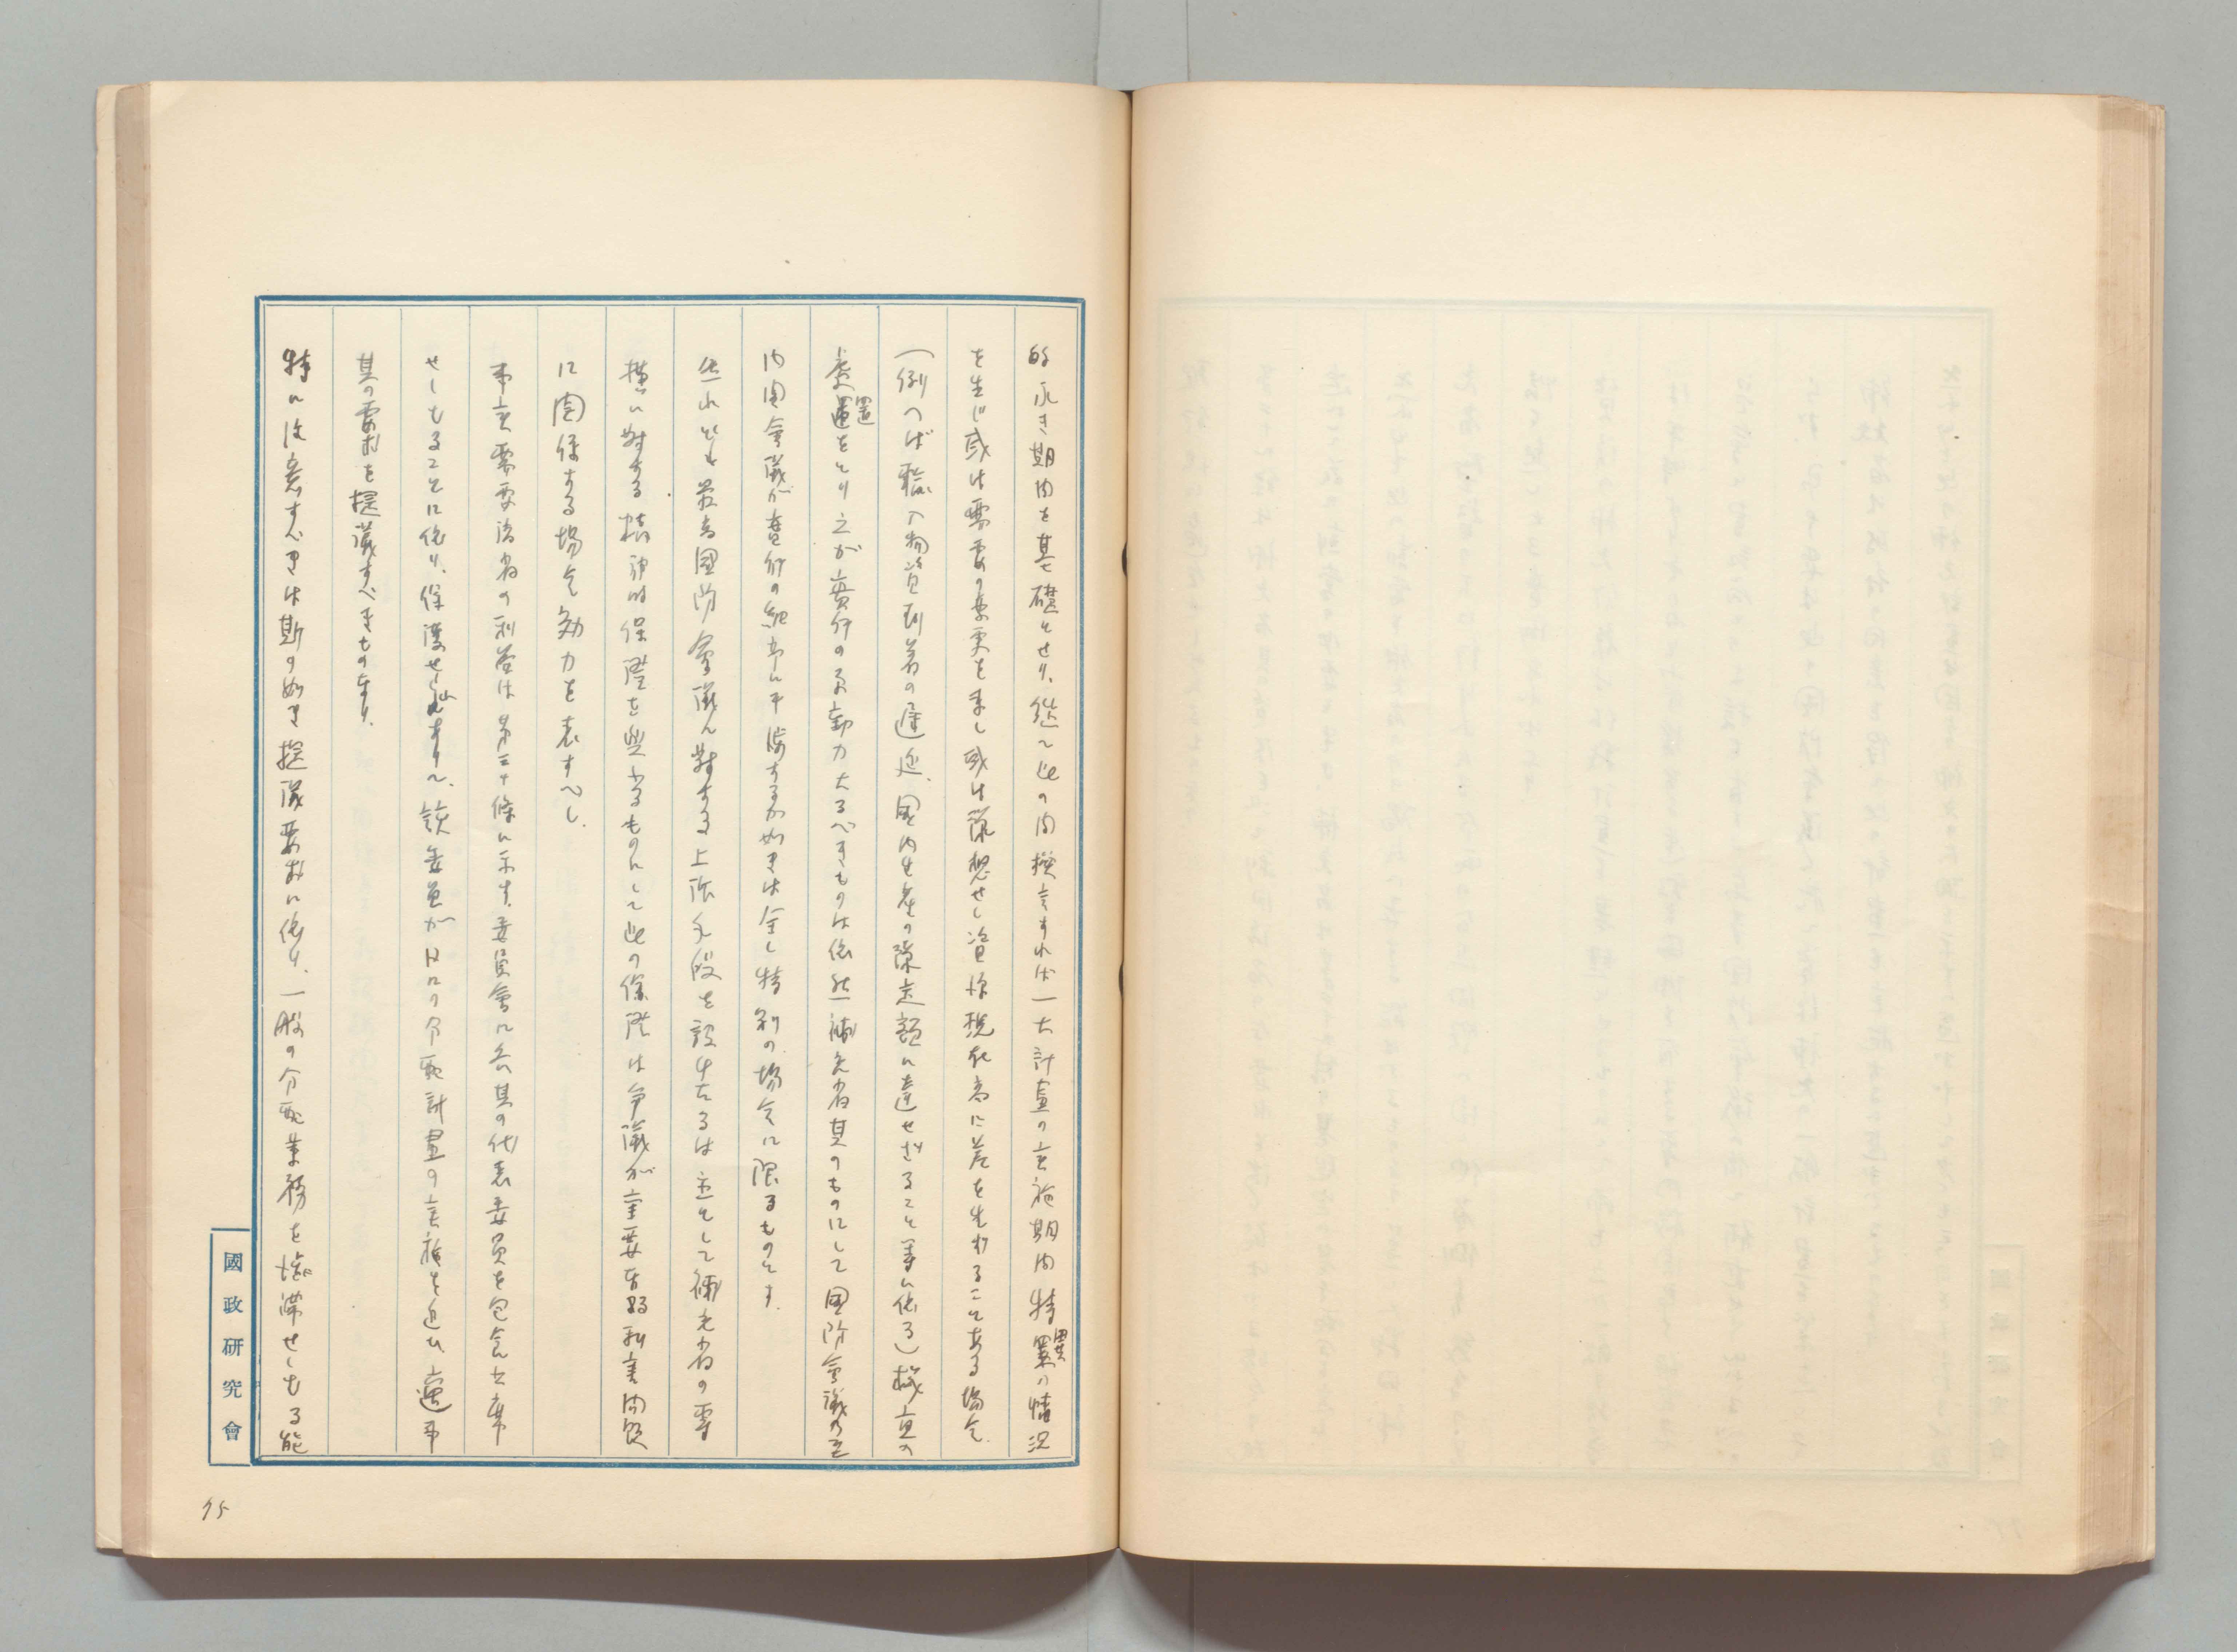 的永き期内を基礎とせり、継て此の内換言すれば一大計畫の実施期内特異の情況
を生じ或は需要の変更を来し或は豫想せし資源現在高に差を生ずることある場合
(例へば輸入物資到着の遅延、国内生産の豫定額に達せざること等に依る)機宜の
處置をとり之が実行の原動力たるべきものは依然補充省其のものにして国防會議乃至
内閣會議が実行の細部に干渉するが如きは全く特別の場合に限るものとす.
然れども最高国防會議に対する上訴手段を設けたるは主として補充省の専
横に対する精神的保障を與ふるものにして此の保障は争議が重要なる利害問題
に関係する場合効力を表すべし.
軍実需要諸省の利益は第三十條に示す委員會に於て其の代表委員を包含出席
せしむることに依り、保護せらるあり、該委員が日々の分配計畫の実施を追ひ適市
其の要求を提議すべきものなり.
特に注意すべきは斯の如き提議要求に依り、一般の分配業務を澁滞せしむる能
國政研究會
75